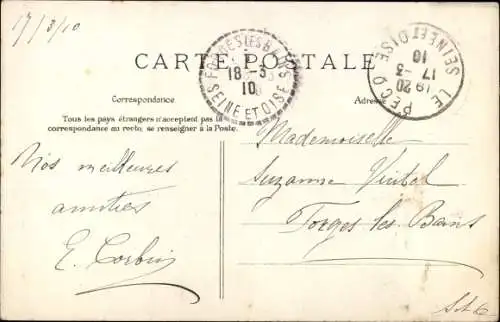 17/3/10
CARTE POSTALE
FORGES LES BAINS
18 -3
10
SEINE ET OISE
LE PECQ
19 20
17 -3
10
SEINE ET OISE
Correspondance
Adresse
Tous les pays étrangers n'acceptent pas la
correspondance au recto; se renseigner à la Poste.
Nos meilleures
amitiés
E. Corbin
Mademoiselle
Suzanne
Forges les Bains
S. et O.